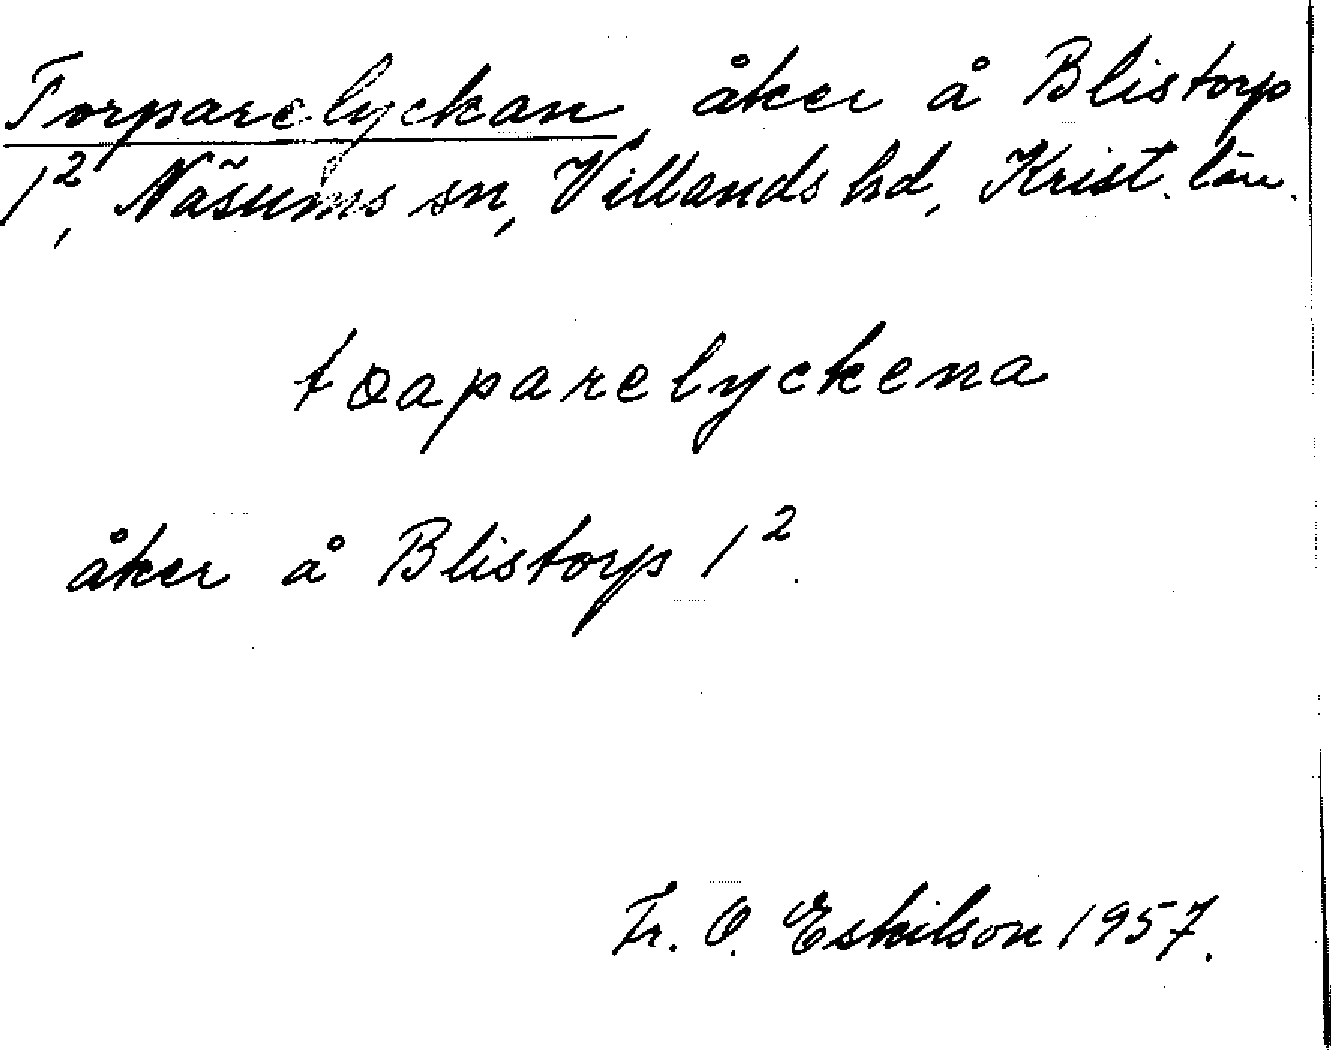 Torparelyckan, åker å Blistorp
1², Näsums sn, Villands hd, Krist. län.
toaparelyckena
åker å Blistorp 1².
Fr. O. Eskilson 1957.